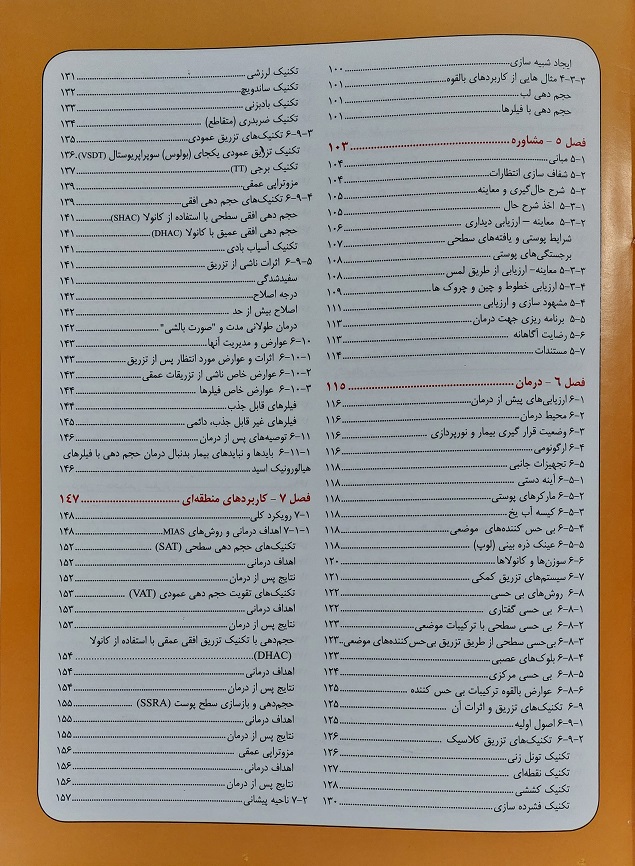 ایجاد شبیه سازی ........ ۱۰۰
۴-۳-۳ مثال هایی از کاربردهای بالقوه ........ ۱۰۱
حجم دهی لب ........ ۱۰۱
حجم دهی با فیلرها ........ ۱۰۱
فصل ۵ - مشاوره ........ ۱۰۳
۵-۱ مبانی ........ ۱۰۴
۵-۲ شفاف سازی انتظارات ........ ۱۰۴
۵-۳ شرح حال‌گیری و معاینه ........ ۱۰۵
۵-۳-۱ اخذ شرح حال ........ ۱۰۵
۵-۳-۲ معاینه – ارزیابی دیداری ........ ۱۰۶
شرایط پوستی و یافته‌های سطحی ........ ۱۰۷
برجستگی‌های پوستی ........ ۱۰۸
۵-۳-۳ معاینه- ارزیابی از طریق لمس ........ ۱۰۸
۵-۳-۴ ارزیابی خطوط و چین و چروک ها ........ ۱۰۹
۵-۴ مشهود سازی و ارزیابی ........ ۱۱۱
۵-۵ برنامه ریزی جهت درمان ........ ۱۱۳
۵-۶ رضایت آگاهانه ........ ۱۱۳
۵-۷ مستندات ........ ۱۱۴
فصل ۶ - درمان ........ ۱۱۵
۶-۱ ارزیابی‌های پیش از درمان ........ ۱۱۶
۶-۲ محیط درمان ........ ۱۱۶
۶-۳ وضعیت قرار گیری بیمار و نورپردازی ........ ۱۱۶
۶-۴ ارگونومی ........ ۱۱۶
۶-۵ تجهیزات جانبی ........ ۱۱۸
۶-۵-۱ آینه دستی ........ ۱۱۸
۶-۵-۲ مارکرهای پوستی ........ ۱۱۸
۶-۵-۳ کیسه آب یخ ........ ۱۱۸
۶-۵-۴ بی حس کننده‌های موضعی ........ ۱۱۸
۶-۵-۵ عینک ذره بینی (لوپ) ........ ۱۱۸
۶-۶ سوزن‌ها و کانولاها ........ ۱۲۰
۶-۷ سیستم‌های تزریق کمکی ........ ۱۲۱
۶-۸ روش‌های بی حسی ........ ۱۲۲
۶-۸-۱ بی حسی گفتاری ........ ۱۲۲
۶-۸-۲ بی حسی سطحی با ترکیبات موضعی ........ ۱۲۳
۶-۸-۳ بی‌حسی سطحی از طریق تزریق بی‌حس‌کننده‌های موضعی ..۱۲۳
۶-۸-۴ بلوک‌های عصبی ........ ۱۲۳
۶-۸-۵ بی حسی مرکزی ........ ۱۲۴
۶-۸-۶ عوارض بالقوه ترکیبات بی حس کننده ........ ۱۲۵
۶-۹ تکنیک‌های تزریق و اثرات آن ........ ۱۲۵
۶-۹-۱ اصول اولیه ........ ۱۲۵
۶-۹-۲ تکنیک‌های تزریق کلاسیک ........ ۱۲۶
تکنیک تونل زنی ........ ۱۲۶
تکنیک نقطه‌ای ........ ۱۲۷
تکنیک کششی ........ ۱۲۸
تکنیک فشرده سازی ........ ۱۳۰
تکنیک لرزشی ........ ۱۳۱
تکنیک ساندویچ ........ ۱۳۲
تکنیک بادبزنی ........ ۱۳۳
تکنیک ضربدری (متقاطع) ........ ۱۳۴
۶-۹-۳ تکنیک‌های تزریق عمودی ........ ۱۳۵
تکنیک تزریق عمودی یکجای (بولوس) سوپراپریوستال (VSDT). ۱۳۶
تکنیک برجی (TT) ........ ۱۳۷
مزوتراپی عمقی ........ ۱۳۹
۶-۹-۴ تکنیک‌های حجم دهی افقی ........ ۱۳۹
حجم دهی افقی سطحی با استفاده از کانولا (SHAC) ........ ۱۴۱
حجم دهی افقی عمیق با کانولا (DHAC) ........ ۱۴۱
تکنیک آسیاب بادی ........ ۱۴۱
۶-۹-۵ اثرات ناشی از تزریق ........ ۱۴۱
سفیدشدگی ........ ۱۴۱
درجه اصلاح ........ ۱۴۲
اصلاح بیش از حد ........ ۱۴۲
درمان طولانی مدت و "صورت بالشی" ........ ۱۴۲
۶-۱۰ عوارض و مدیریت آنها ........ ۱۴۳
۶-۱۰-۱ اثرات و عوارض مورد انتظار پس از تزریق ........ ۱۴۳
۶-۱۰-۲ عوارض خاص ناشی از تزریقات عمقی ........ ۱۴۳
۶-۱۰-۳ عوارض خاص فیلرها ........ ۱۴۴
فیلرهای قابل جذب ........ ۱۴۴
فیلرهای غیر قابل جذب، دائمی ........ ۱۴۵
۶-۱۱ توصیه‌های پس از درمان ........ ۱۴۶
۶-۱۱-۱ بایدها و نبایدهای بیمار بدنبال درمان حجم دهی با فیلرهای
هیالورونیک اسید ........ ۱۴۶
فصل ۷ - کاربردهای منطقه‌ای ........ ۱۴۷
۷-۱ رویکرد کلی ........ ۱۴۸
۷-۱-۱ اهداف درمانی و روش‌های MIAS ........ ۱۴۸
تکنیک‌های حجم دهی سطحی (SAT) ........ ۱۵۲
اهداف درمانی ........ ۱۵۲
نتایج پس از درمان ........ ۱۵۲
تکنیک‌های تقویت حجم دهی عمودی (VAT) ........ ۱۵۳
اهداف درمانی ........ ۱۵۳
نتایج پس از درمان ........ ۱۵۳
حجم‌دهی با تکنیک تزریق افقی عمقی با استفاده از کانولا
(DHAC) ........ ۱۵۴
اهداف درمانی ........ ۱۵۴
نتایج پس از درمان ........ ۱۵۴
حجم‌دهی و بازسازی سطح پوست (SSRA) ........ ۱۵۵
اهداف درمانی ........ ۱۵۵
نتایج پس از درمان ........ ۱۵۵
مزوتراپی عمقی ........ ۱۵۶
اهداف درمانی ........ ۱۵۶
نتایج پس از درمان ........ ۱۵۶
۷-۲ ناحیه پیشانی ........ ۱۵۷